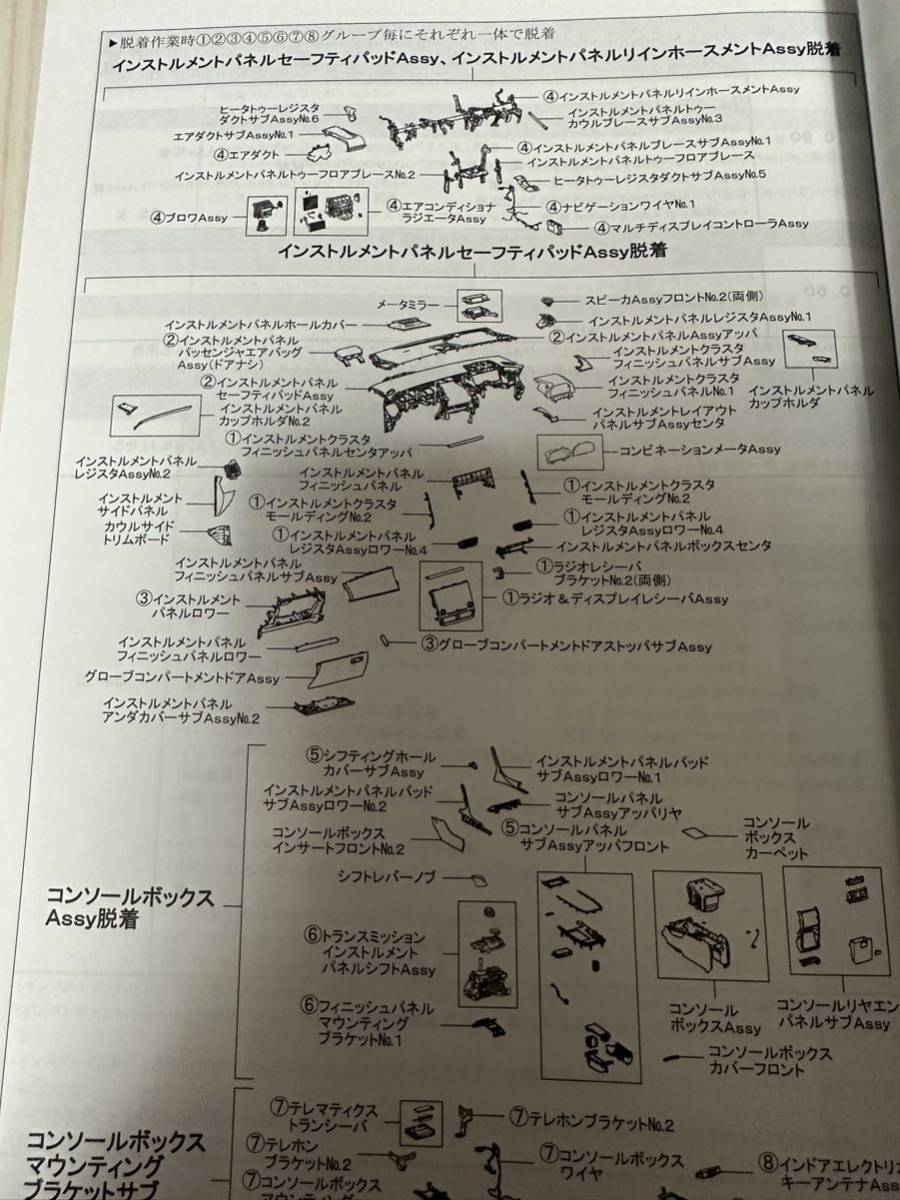 ▶脱着作業時①②③④⑤⑥⑦⑧グループ毎にそれぞれ一体で脱着
インストルメントパネルセーフティパッドAssy、インストルメントパネルリインホースメントAssy脱着
④インストルメントパネルリインホースメントAssy
ヒータトゥーレジスタ
ダクトサブAssyNo.6
インストルメントパネルトゥー
カウルブレースサブAssyNo.3
エアダクトサブAssyNo.1
④インストルメントパネルブレースサブAssyNo.1
④エアダクト
インストルメントパネルトゥーフロアブレース
インストルメントパネルトゥーフロアブレースNo.2
ヒータトゥーレジスタダクトサブAssyNo.5
④ブロワAssy
④エアコンディショナ
ラジエータAssy
④ナビゲーションワイヤNo.1
④マルチディスプレイコントローラAssy
インストルメントパネルセーフティパッドAssy脱着
メータミラー
スピーカAssyフロントNo.2(両側)
インストルメントパネルホールカバー
インストルメントパネルレジスタAssyNo.1
②インストルメントパネル
パッセンジャエアバッグ
Assy(ドアナシ)
②インストルメントパネルAssyアッパ
インストルメントクラスタ
フィニッシュパネルサブAssy
②インストルメントパネル
セーフティパッドAssy
インストルメントクラスタ
フィニッシュパネルNo.1
インストルメントパネル
カップホルダ
インストルメントパネル
カップホルダNo.2
インストルメントレイアウト
パネルサブAssyセンタ
①インストルメントクラスタ
フィニッシュパネルセンタアッパ
コンビネーションメータAssy
インストルメントパネル
レジスタAssyNo.2
インストルメントパネル
フィニッシュパネル
インストルメント
サイドパネル
①インストルメントクラスタ
モールディングNo.2
①インストルメントクラスタ
モールディングNo.2
カウルサイド
トリムボード
①インストルメントパネル
レジスタAssyロワーNo.4
①インストルメントパネル
レジスタAssyロワーNo.4
インストルメントパネルボックスセンタ
インストルメントパネル
フィニッシュパネルサブAssy
①ラジオレシーバ
ブラケットNo.2(両側)
③インストルメント
パネルロワー
①ラジオ＆ディスプレイレシーバAssy
インストルメントパネル
フィニッシュパネルロワー
③グローブコンパートメントドアストッパサブAssy
グローブコンパートメントドアAssy
インストルメントパネル
アンダカバーサブAssyNo.2
⑤シフティングホール
カバーサブAssy
インストルメントパネルパッド
サブAssyロワーNo.1
インストルメントパネルパッド
サブAssyロワーNo.2
コンソールパネル
サブAssyアッパリヤ
コンソールボックス
インサートフロントNo.2
⑤コンソールパネル
サブAssyアッパフロント
コンソール
ボックス
カーペット
シフトレバーノブ
コンソールボックス
Assy脱着
⑥トランスミッション
インストルメント
パネルシフトAssy
⑥フィニッシュパネル
マウンティング
ブラケットNo.1
コンソール
ボックスAssy
コンソールリヤエン
パネルサブAssy
コンソールボックス
カバーフロント
⑦テレマティクス
トランシーバ
⑦テレホンブラケットNo.2
コンソールボックス
マウンティング
ブラケットサブ
⑦テレホン
ブラケットNo.2
⑦コンソールボックス
ワイヤ
⑧インドアエレクトリカ
キーアンテナAss
⑦コンソールボックス
マウンティング